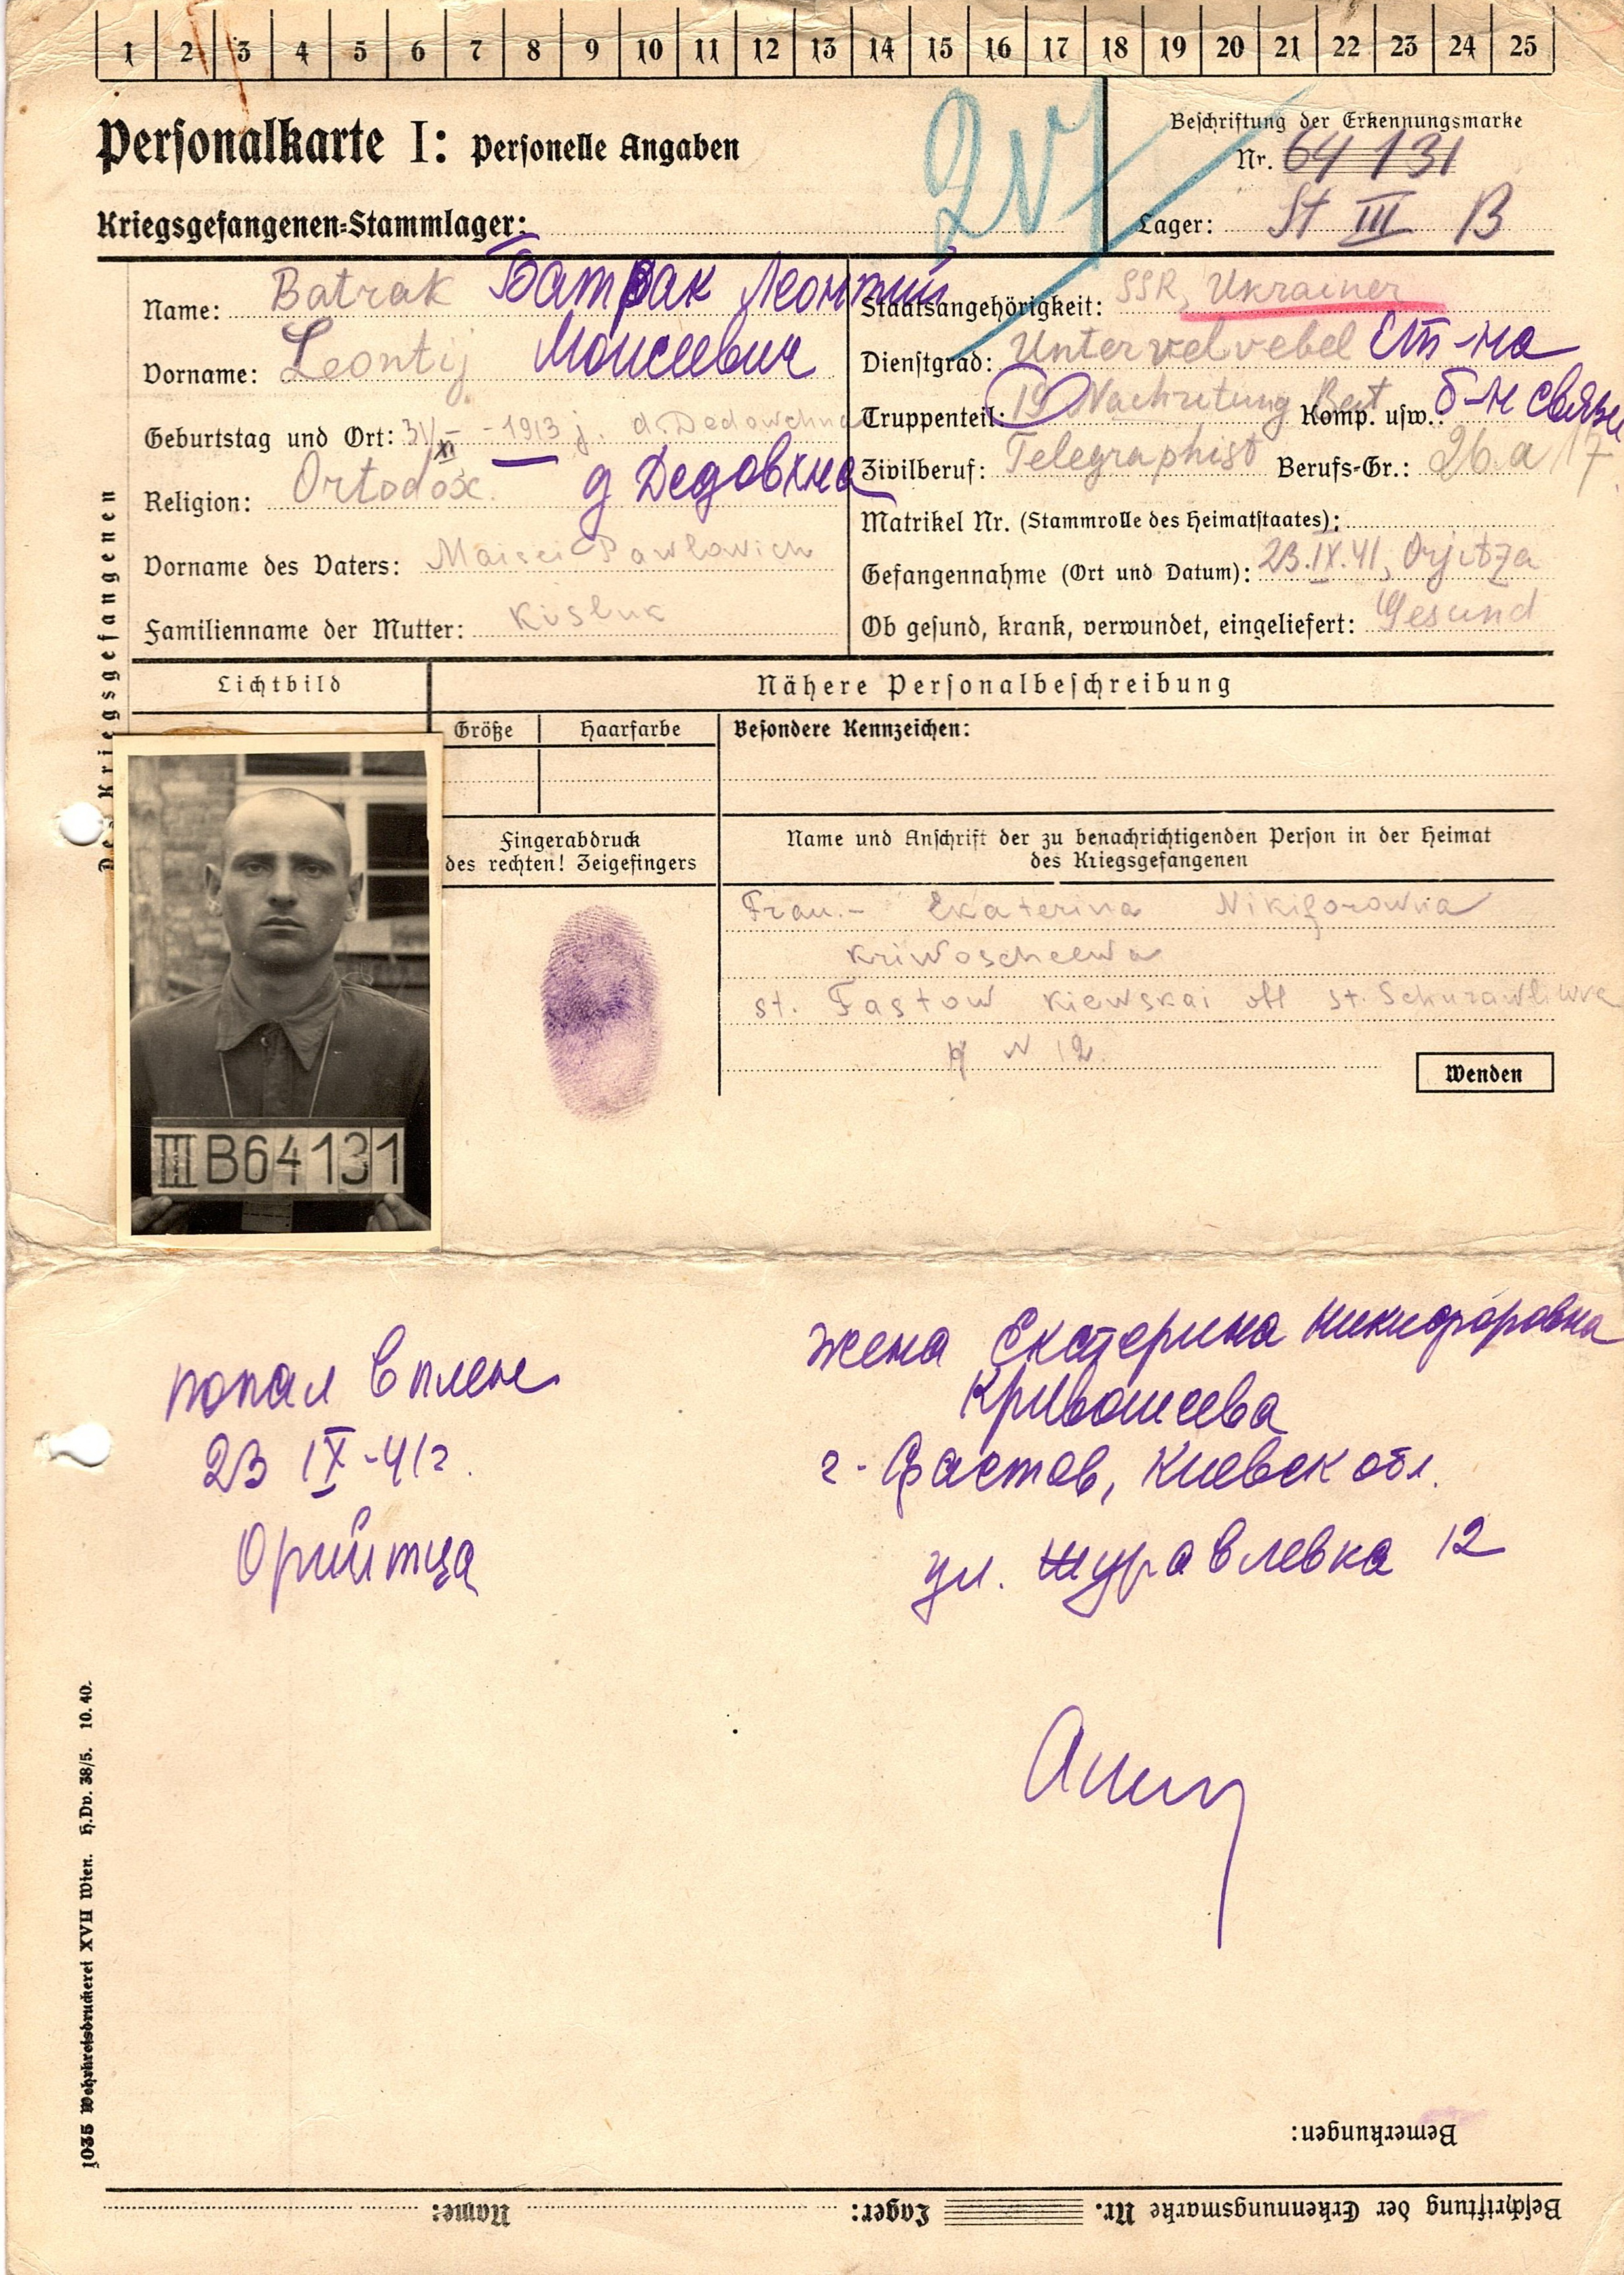 1 2 3 4 5 6 7 8 9 10 11 12 13 14 15 16 17 18 19 20 21 22 23 24 25
Personalkarte I: Personelle Angaben
Beschriftung der Erkennungsmarke
Nr. 64131
Kriegsgefangenen=Stammlager:
Lager: St III B
Des Kriegsgefangenen
Name: Batrak Батрак Леонтий
Vorname: Leontij Моисеевич
Geburtstag und Ort: 31/XI - 1913 j. d. Dedowchna
Religion: Ortodox. д Дедовхна
Vorname des Vaters: Maisei Pawlowich
Familienname der Mutter: Kisluk
Staatsangehörigkeit: SSR, Ukrainer
Dienstgrad: Untervelvebel Ст-на
Truppenteil: 19 Nachritung Bat Komp. usw.: б-н связи
Zivilberuf: Telegraphist Berufs-Gr.: 26.a/17
Matrikel Nr. (Stammrolle des Heimatstaates):
Gefangennahme (Ort und Datum): 23.IX.41, Orjitza
Ob gesund, krank, verwundet, eingeliefert: Gesund
Lichtbild
Nähere Personalbeschreibung
Größe Haarfarbe Besondere Kennzeichen:
Fingerabdruck
des rechten! Zeigefingers
Name und Anschrift der zu benachrichtigenden Person in der Heimat
des Kriegsgefangenen
Frau.- Ekaterina Nikiforowna
Kriwoscheewa
st. Fastow Kiewskai obl st. Schurawliwka
N 12.
Wenden
III B64131
попал в плен
23 IX-41г.
Орийтца
жена Екатерина Никифоровна
Кривошеева
г. Фастов, Киевск обл.
ул. Журавлевка 12
1035 Wehrkreisdruckerei XVII Wien. H.Dv. 38/5. 10.40.
Bemerkungen:
Beschriftung der Erkennungsmarke Nr. Lager: Name: